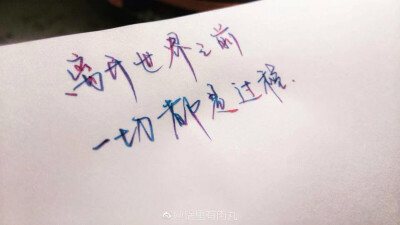 离开世界之前
一切都是过程.